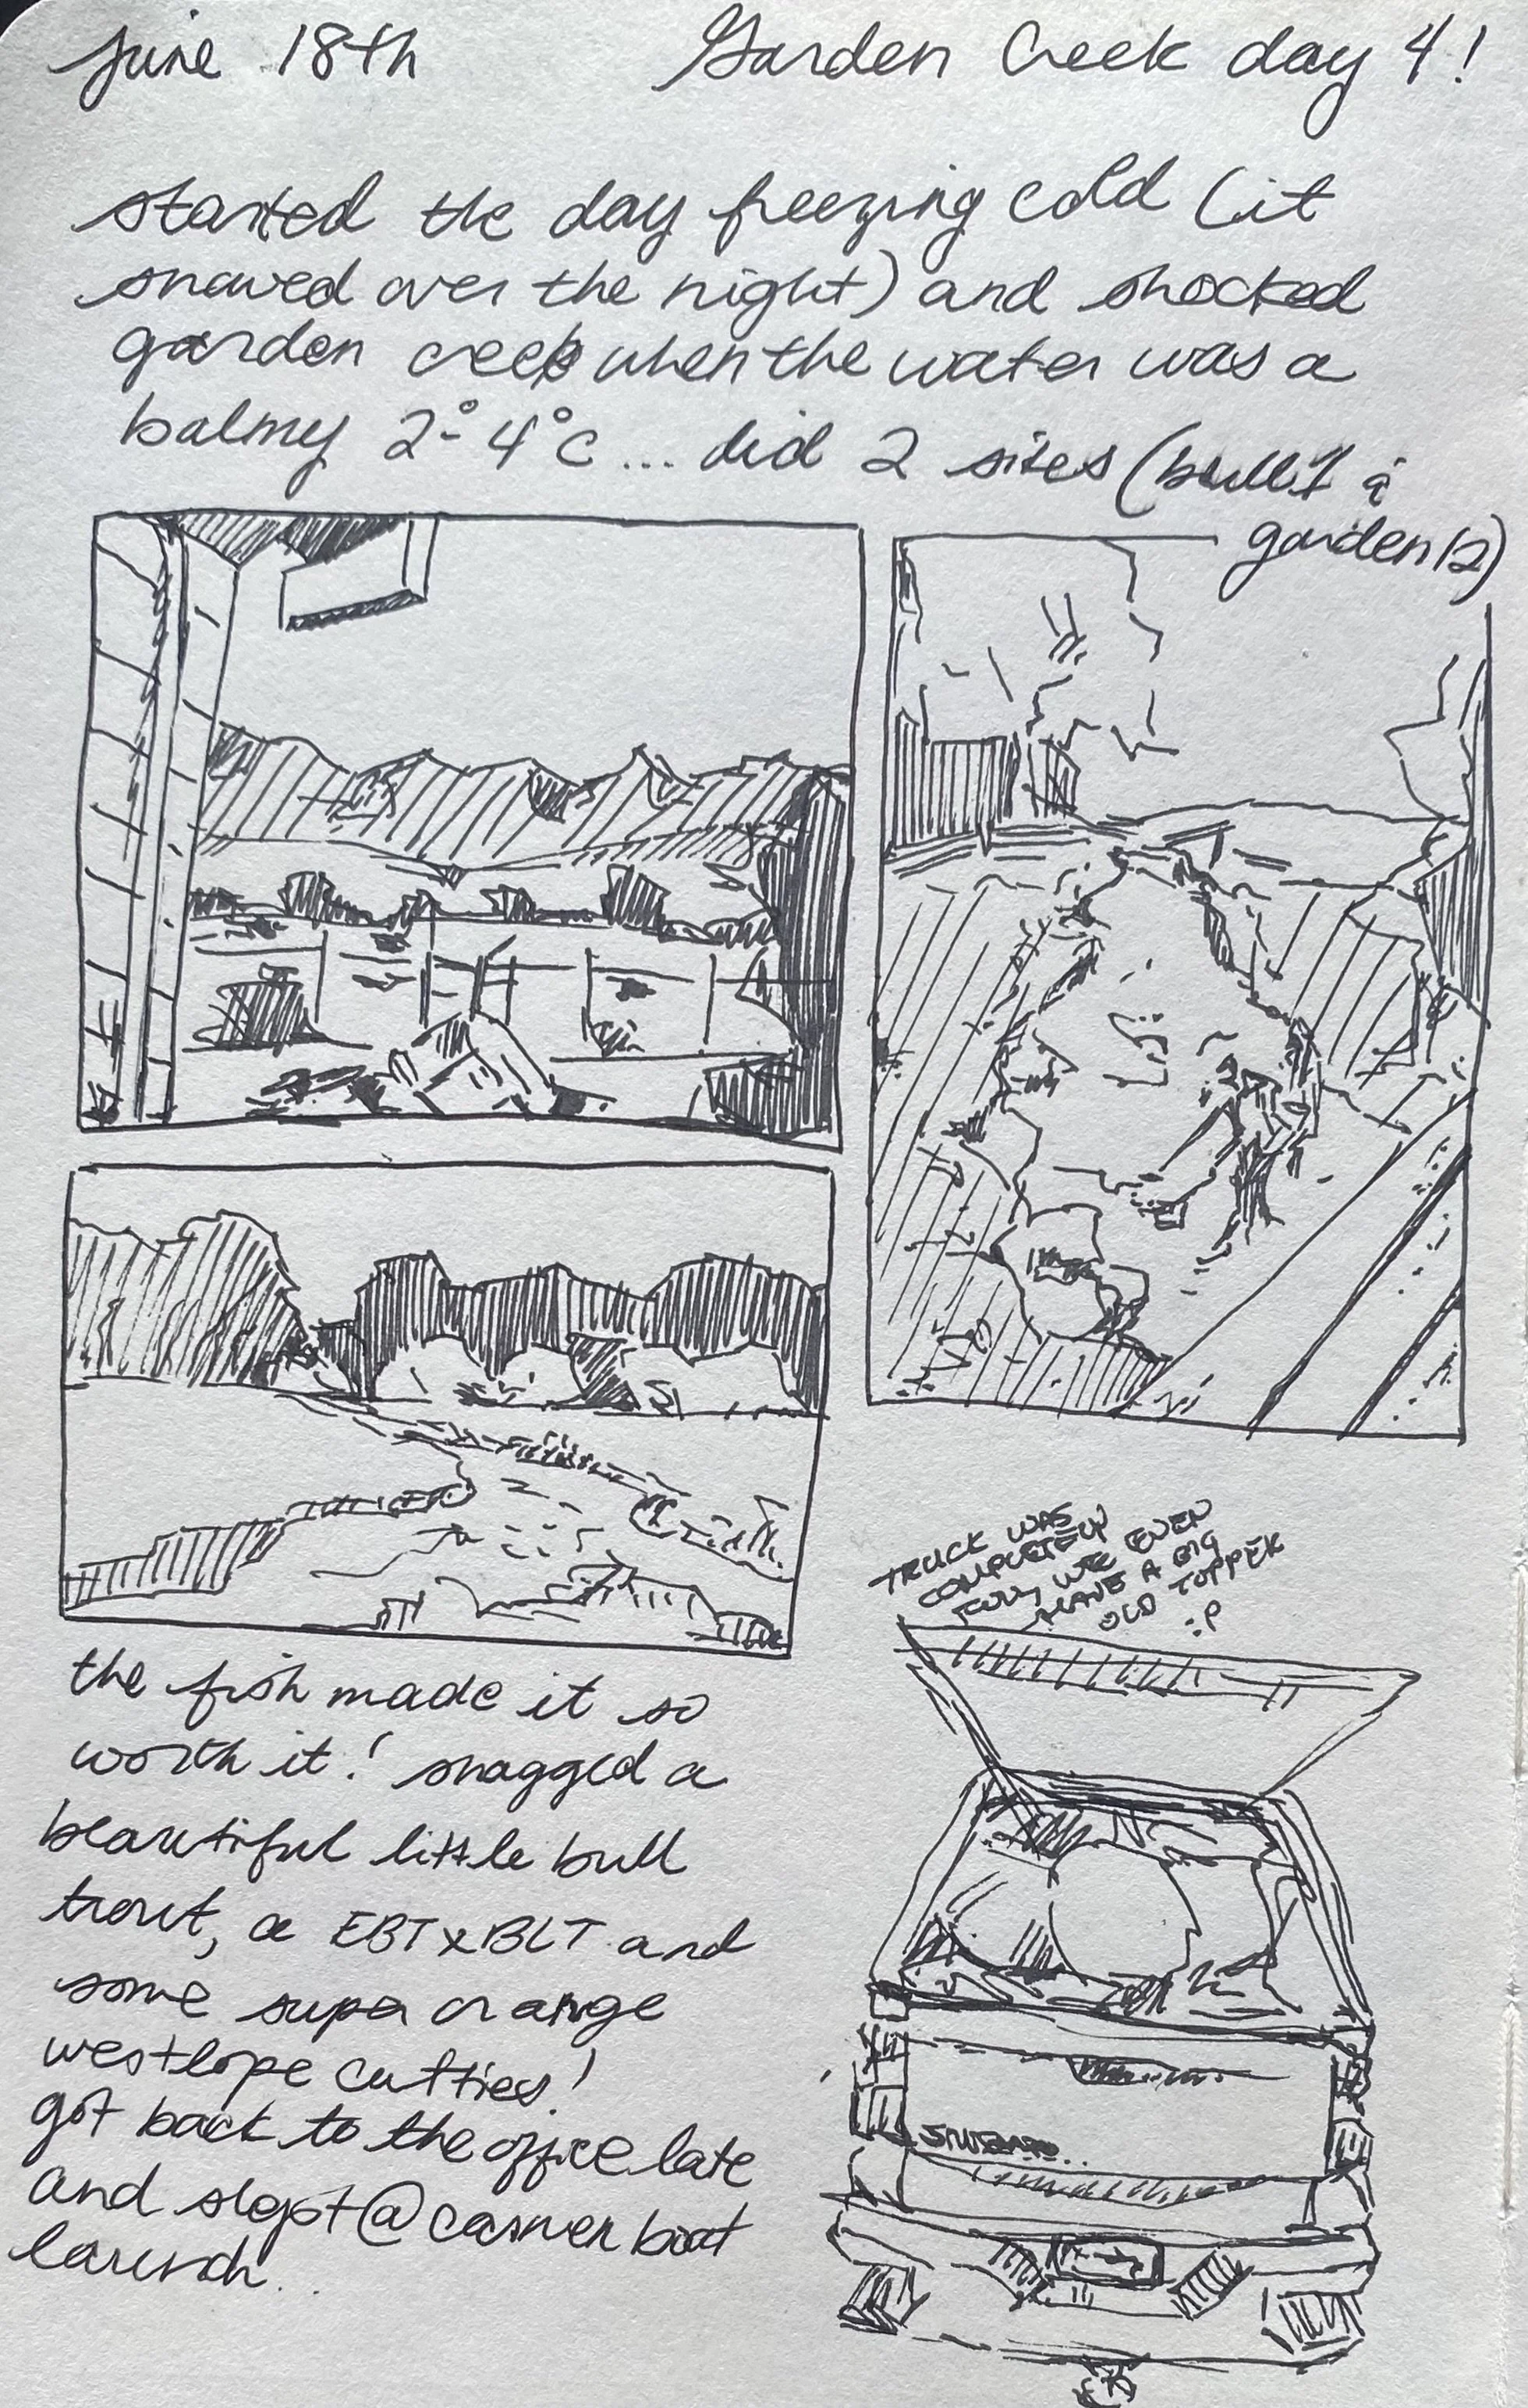 june 18th Garden Creek day 4!
started the day freezing cold (it
snowed over the night) and shocked
garden creek when the water was a
balmy 2°-4°C... did 2 sites (bull1 &
garden12)
TRUCK WAS
COMPLETELY
FULL, WE EVEN
HAVE A BIG
OLD TOPPER
:P
the fish made it so
worth it! snagged a
beautiful little bull
trout, a EBTxBLT and
some super orange
westlope cutties!
got back to the office late
and slept @ boat
launch..